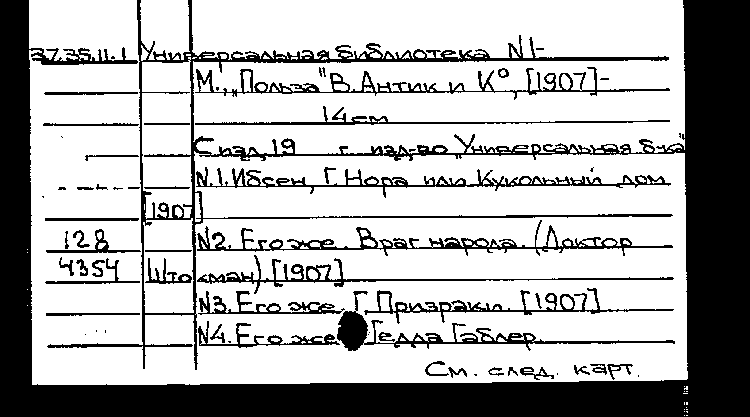 37.35.11.1 Универсальная библиотека N1-
М., „Польза" В. Антик и К°, [1907]-
14см
С изд. 19 г. изд-во „Универсальная б-ка"
N.1. Ибсен, Г. Нора или Кукольный дом
[1907]
128 N2. Его же. Враг народа. (Доктор
4354 Штокман). [1907]
N3. Его же. Г. Призраки. [1907]
N4. Его же Гедда Габлер.
См. след. карт.